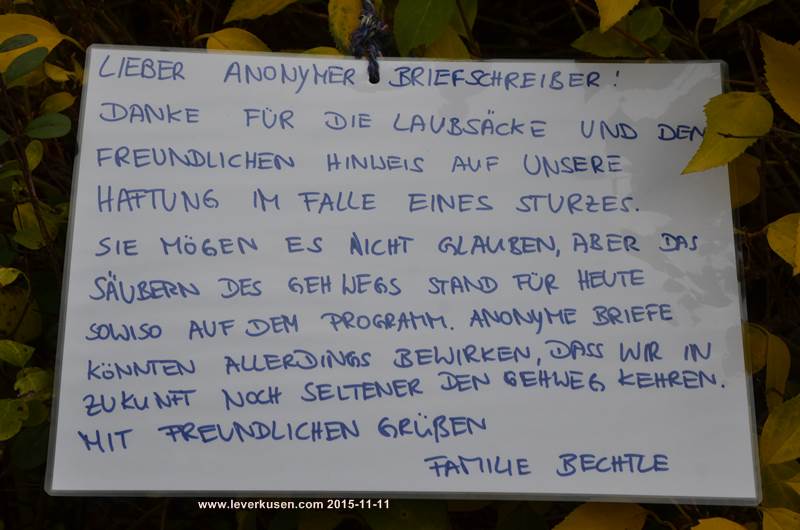 LIEBER ANONYMER BRIEFSCHREIBER!
DANKE FÜR DIE LAUBSÄCKE UND DEN
FREUNDLICHEN HINWEIS AUF UNSERE
HAFTUNG IM FALLE EINES STURZES.
SIE MÖGEN ES NICHT GLAUBEN, ABER DAS
SÄUBERN DES GEHWEGS STAND FÜR HEUTE
SOWISO AUF DEM PROGRAMM. ANONYME BRIEFE
KÖNNTEN ALLERDINGS BEWIRKEN, DASS WIR IN
ZUKUNFT NOCH SELTENER DEN GEHWEG KEHREN.
MIT FREUNDLICHEN GRÜßEN
FAMILIE BECHTLE
www.leverkusen.com 2015-11-11